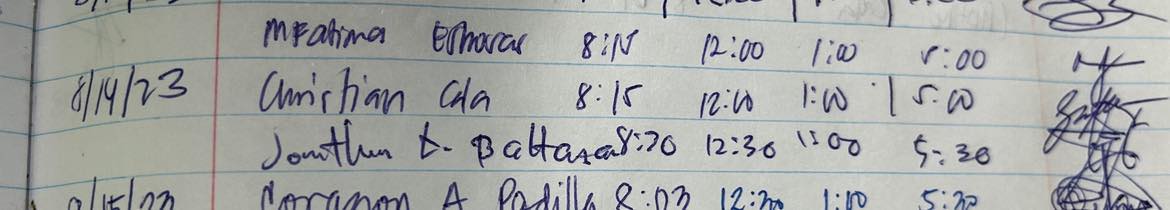 MFatima 8:15 12:00 1:00 5:00
8/14/23 Christian Cala 8:15 12:00 1:00 5:00
Jonathan D. Baltazar 8:20 12:30 1:00 5:30
8/15/23 A Padilla 8:03 12:30 1:00 5:30